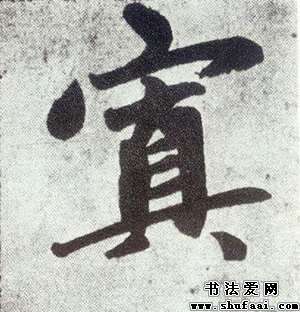 寘
书法爱网
www.shufaai.com